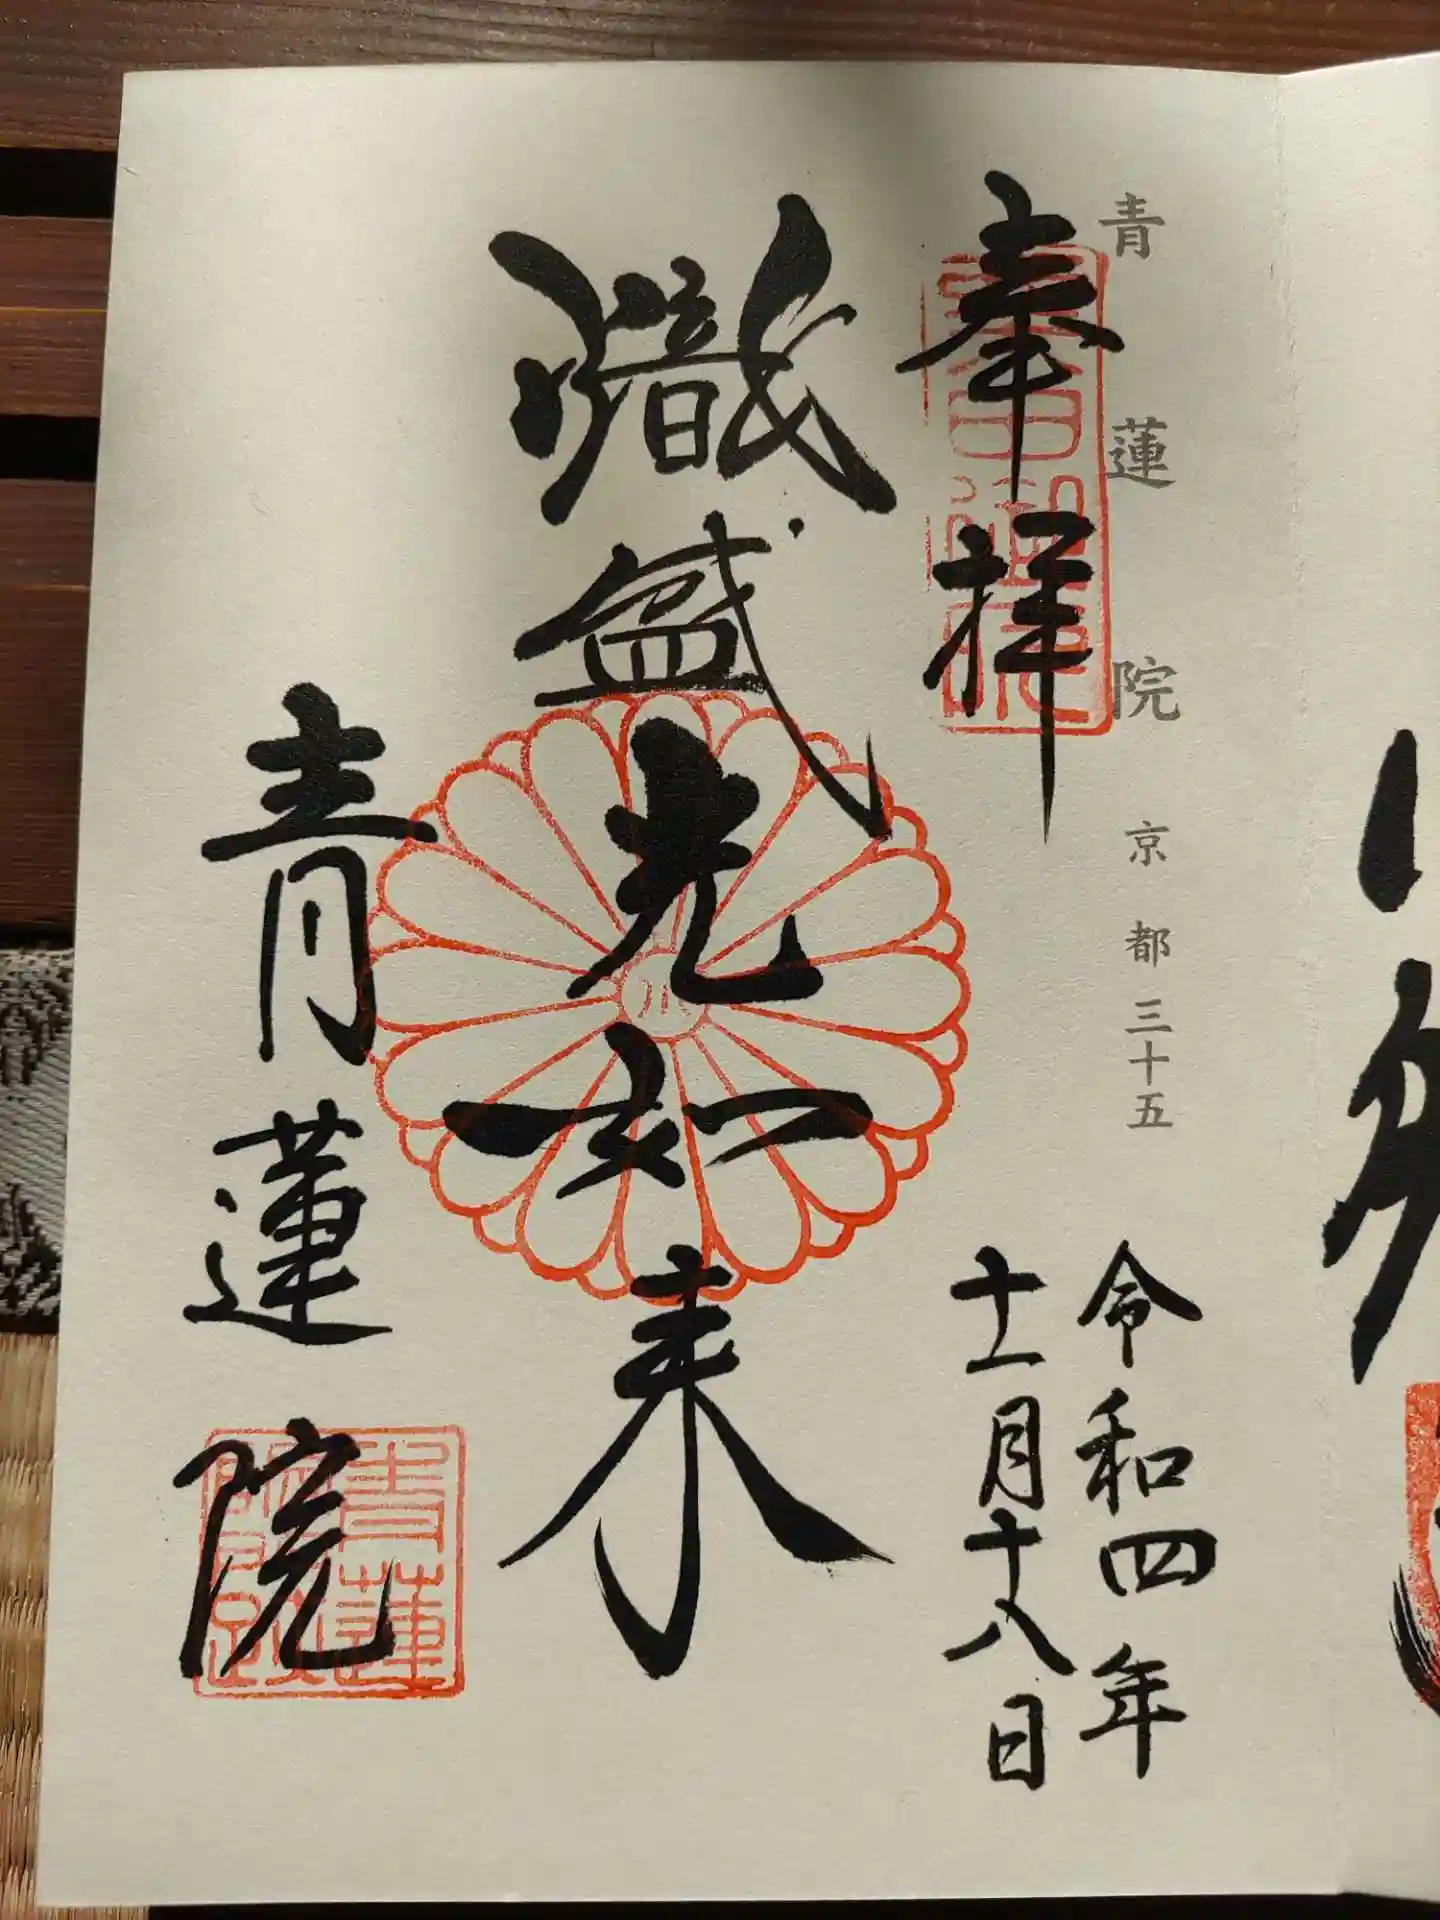 青蓮院 京都 三十五
奉拝
令和四年
十一月十八日
熾盛光如来
青蓮院